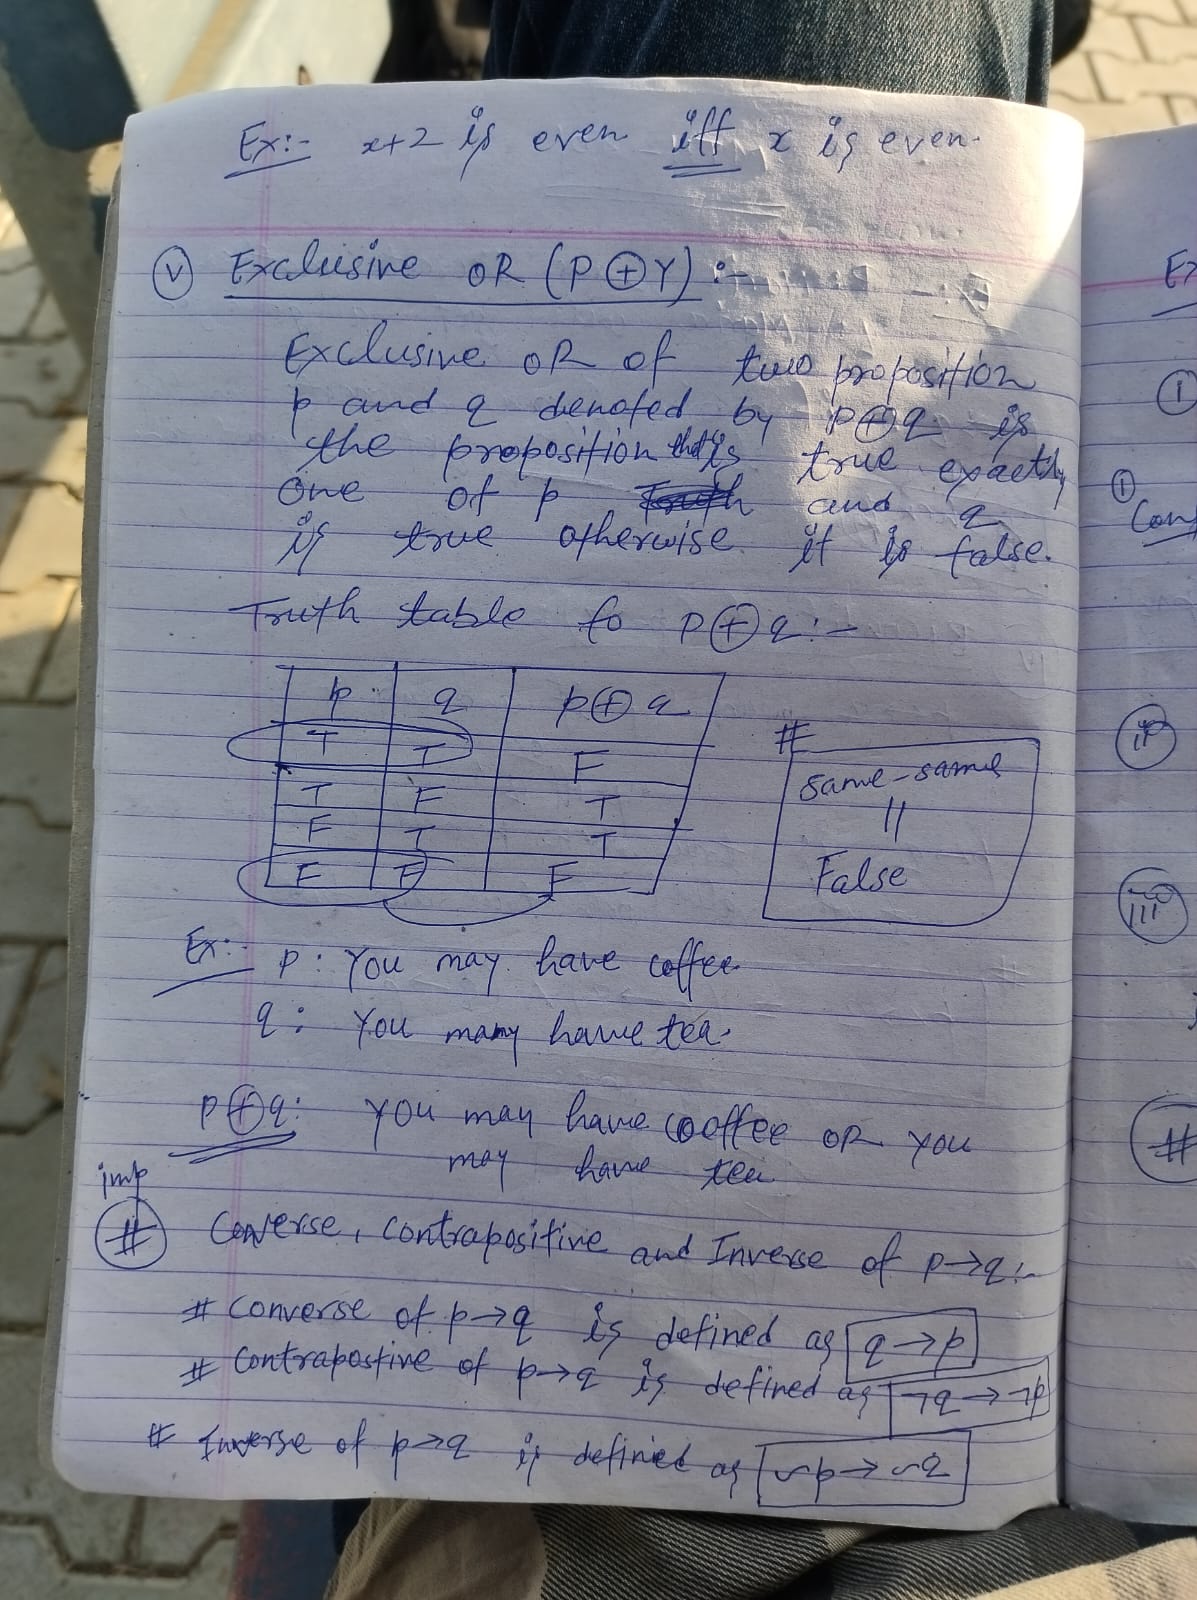 Ex:- x+2 is even iff x is even.
(v) Exclusive OR (P ⊕ Y) :-
Exclusive OR of two proposition
p and q denoted by p⊕q is
the proposition that is true exactly
one of p and q
is true otherwise it is false.
Truth table fo p⊕q :-
p q p⊕q
T T F
T F T
F T T
F F F
#
same-same
||
False
Ex:- p: You may have coffee.
q: You many have tea.
p⊕q: you may have cooffee OR you
may have tea
imp
# Converse, contrapositive and Inverse of p→q:-
# Converse of p→q is defined as q→p
# Contrapostive of p→q is defined as ¬q→¬p
# Inverse of p→q is defined as ~p→~q
Ex
(i)
(i)
Con
(ii)
(iii)
#